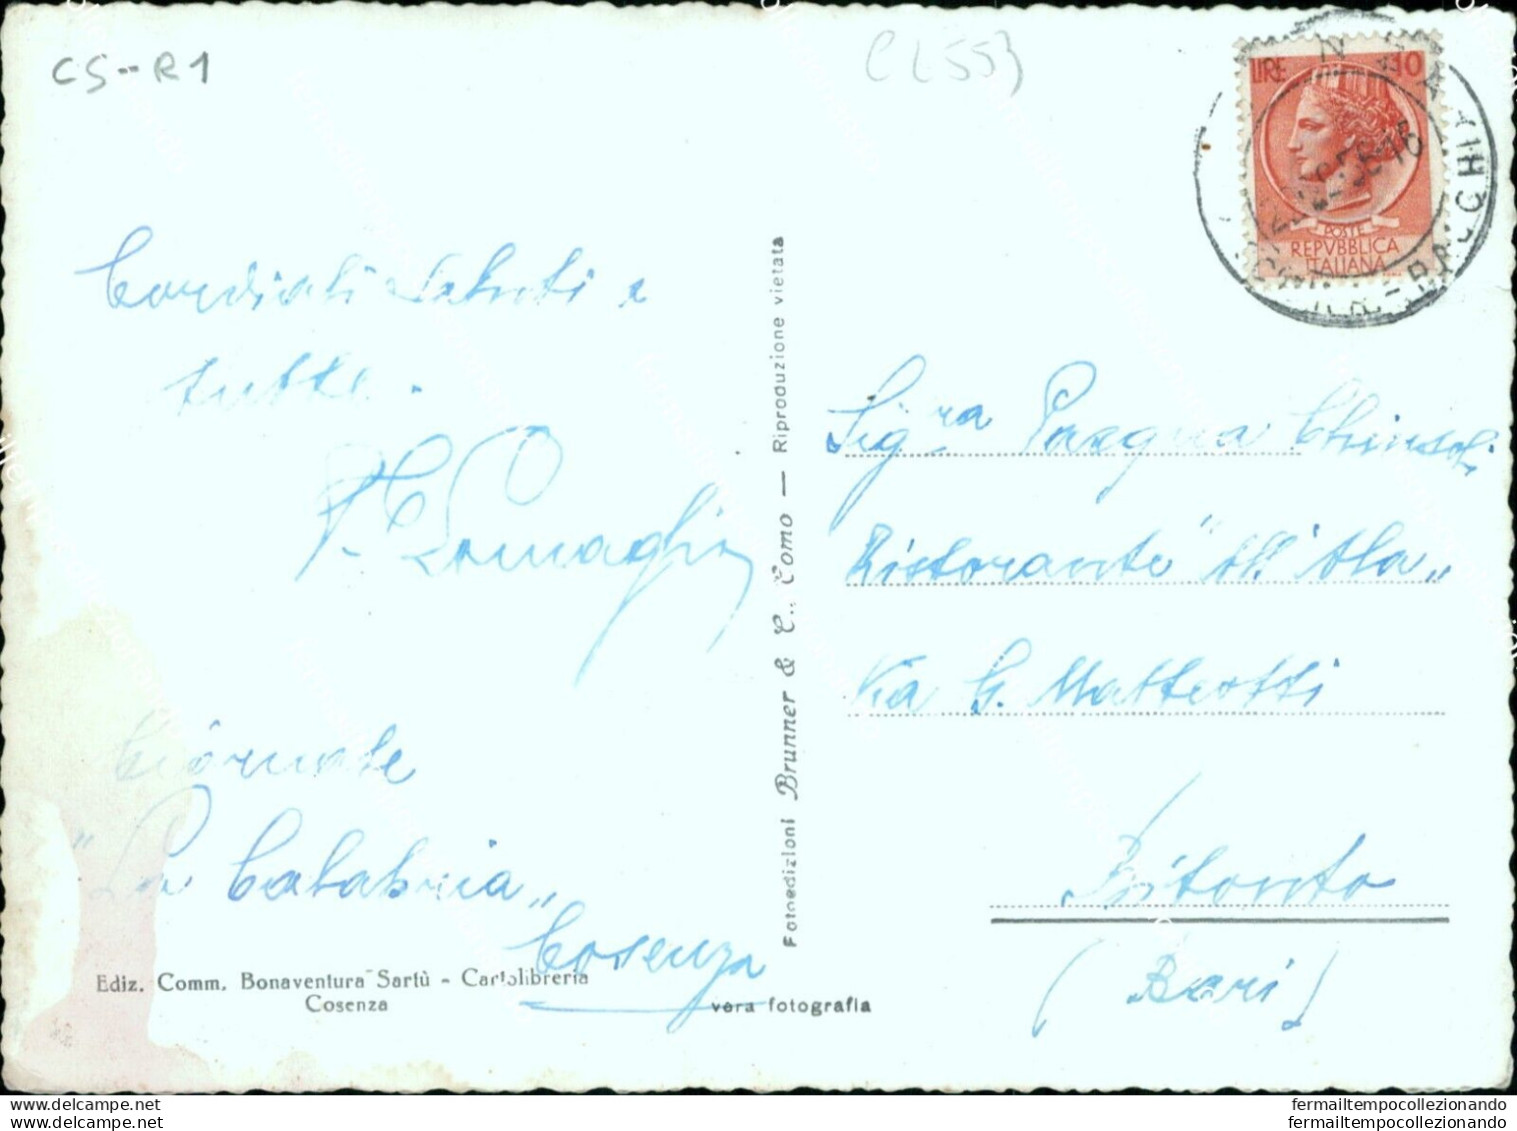 CS--R1
CL553
LIRE 10
POSTE
REPVBBLICA
ITALIANA
Cordiali saluti a
tutte.
Giornale
"La Calabria"
Cosenza
Ediz. Comm. Bonaventura Sartù - Cartolibreria
Cosenza
vera fotografia
Fotoedizioni Brunner & C., Como — Riproduzione vietata
Sig.ra Pasqua
Ristorante "All'Ala"
Via G. Matteotti
Bitonto
(Bari)
www.delcampe.net
www.delcampe.net
fermailtempocollezionando
fermailtempocollezionando